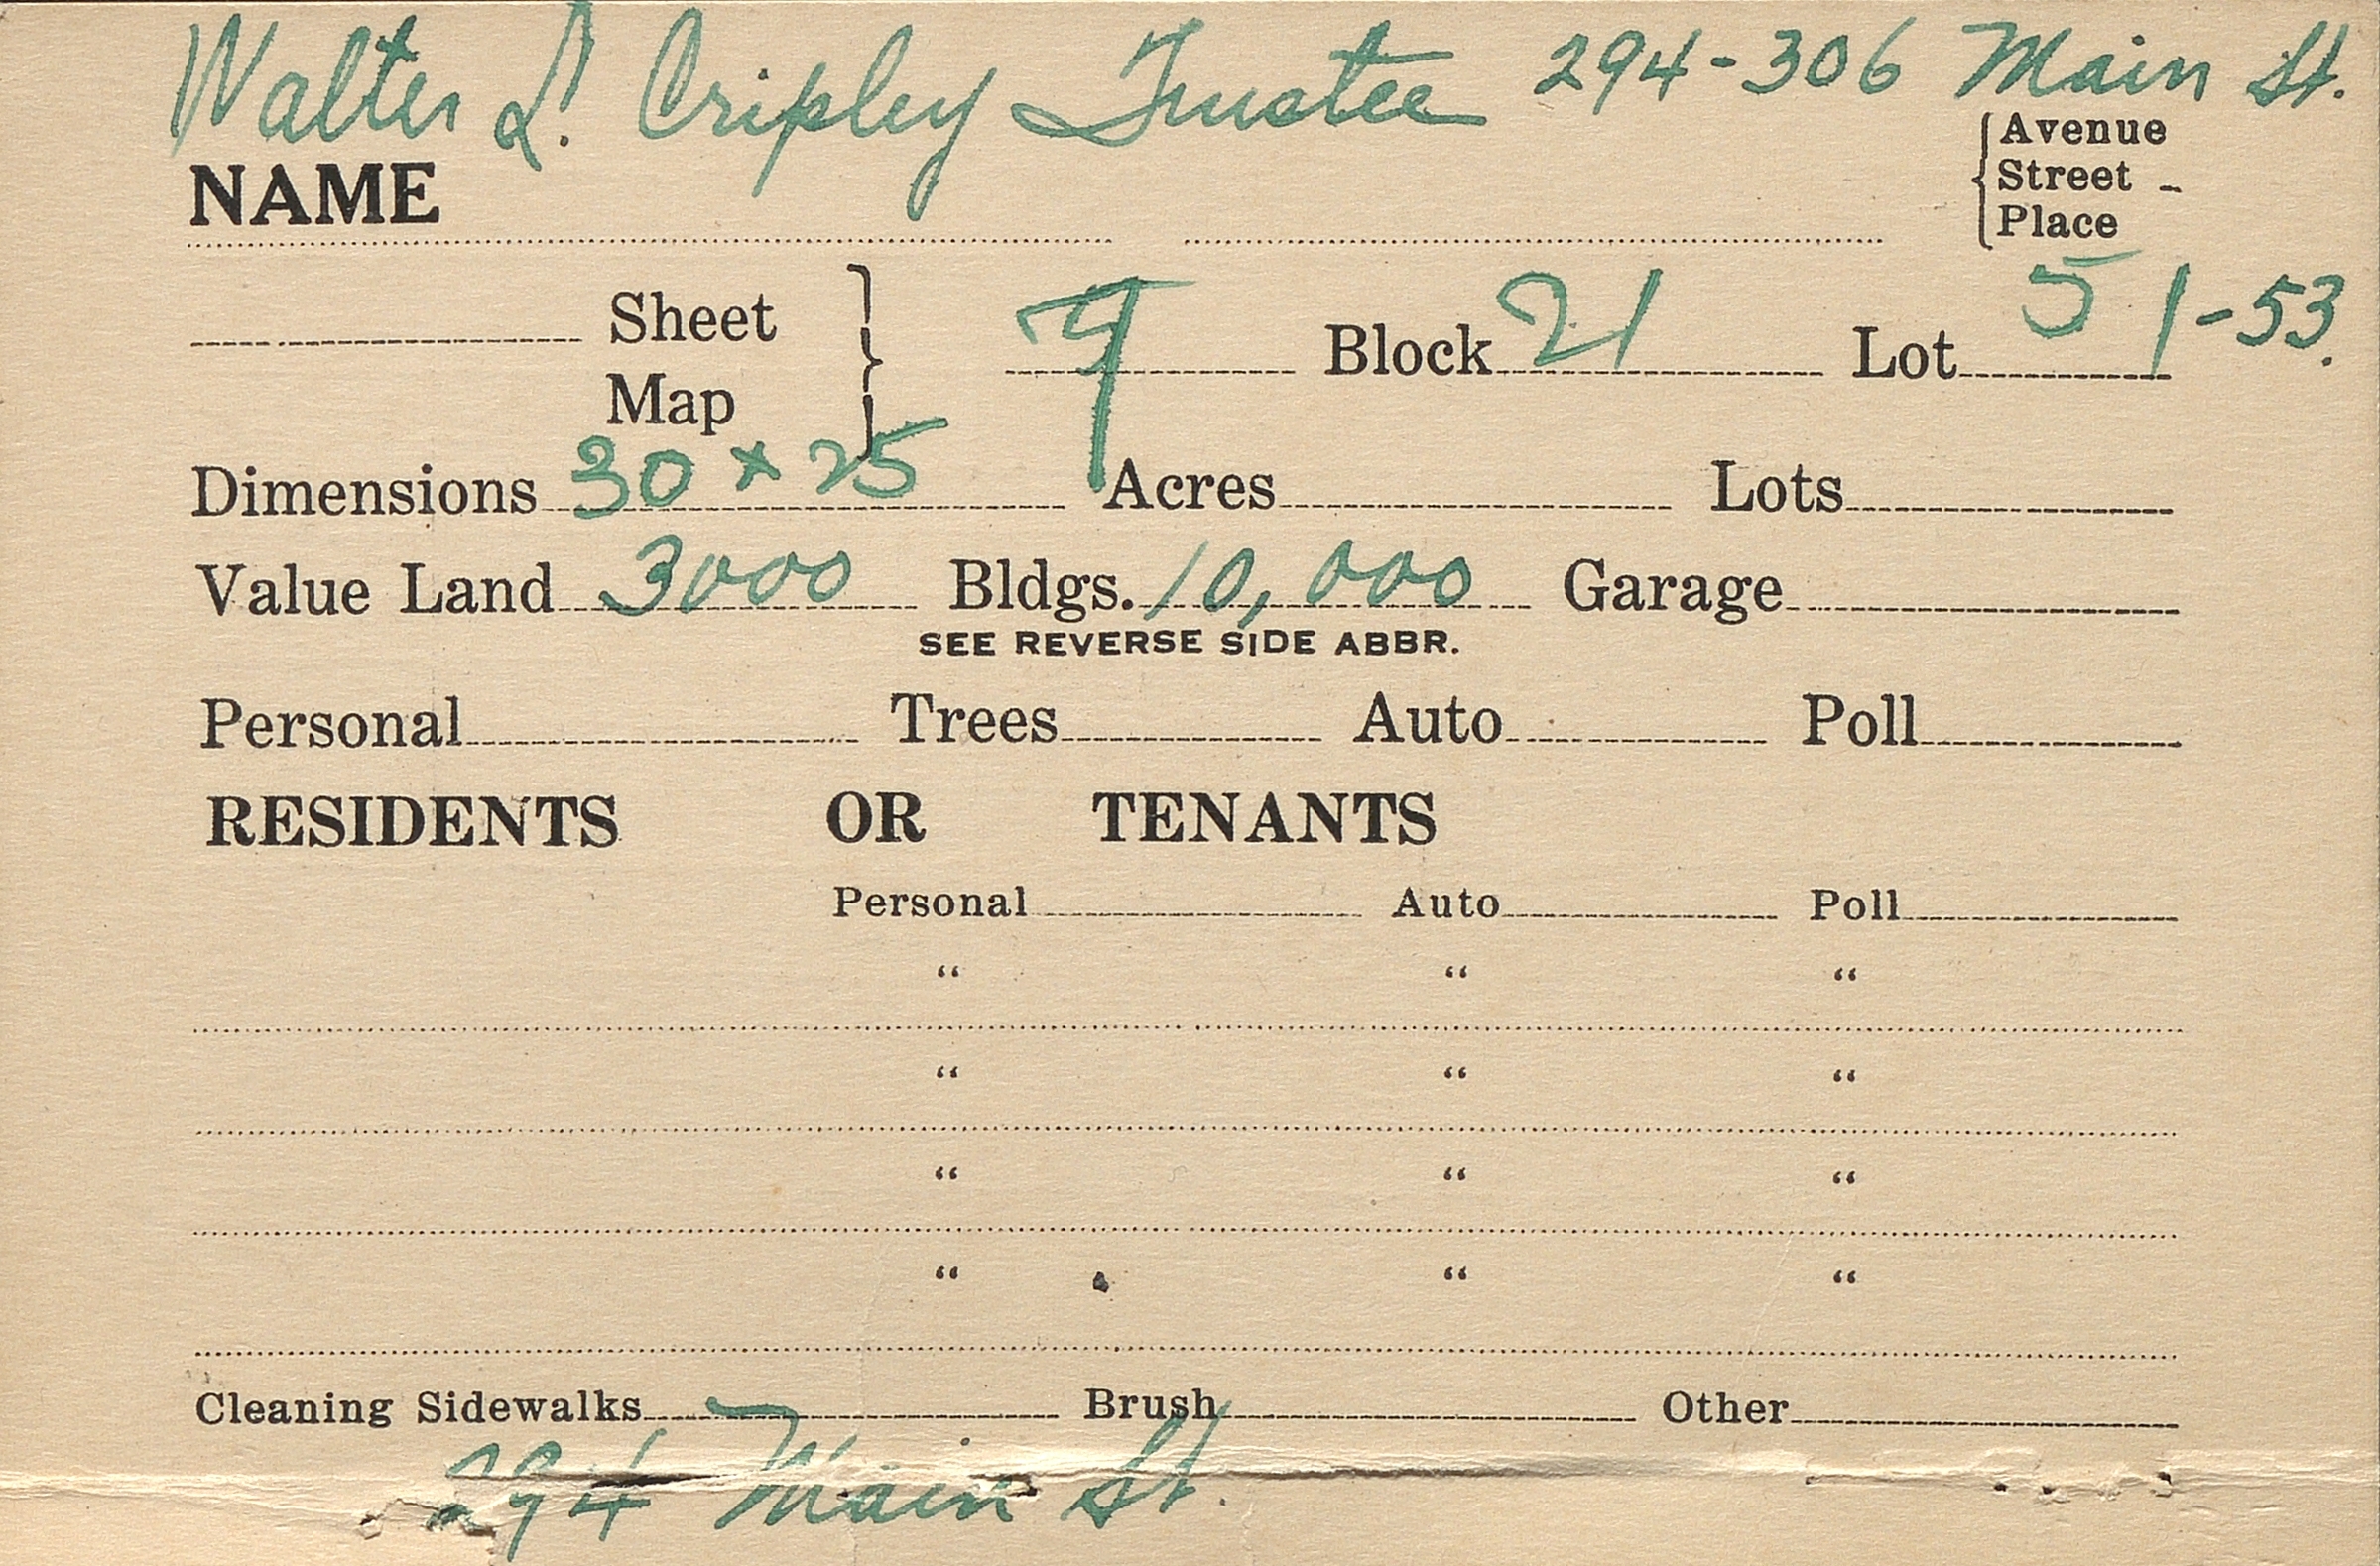 Walter L. Cripley Trustee 294-306 Main St.
NAME
Avenue
Street -
Place
Sheet
Map
9 Block 21 Lot 51-53.
Dimensions 30 x 25 Acres Lots
Value Land 3000 Bldgs. 10,000 Garage
SEE REVERSE SIDE ABBR.
Personal Trees Auto Poll
RESIDENTS OR TENANTS
Personal Auto Poll
“ “ “
“ “ “
“ “ “
“ “ “
Cleaning Sidewalks Brush Other
294 Main St.